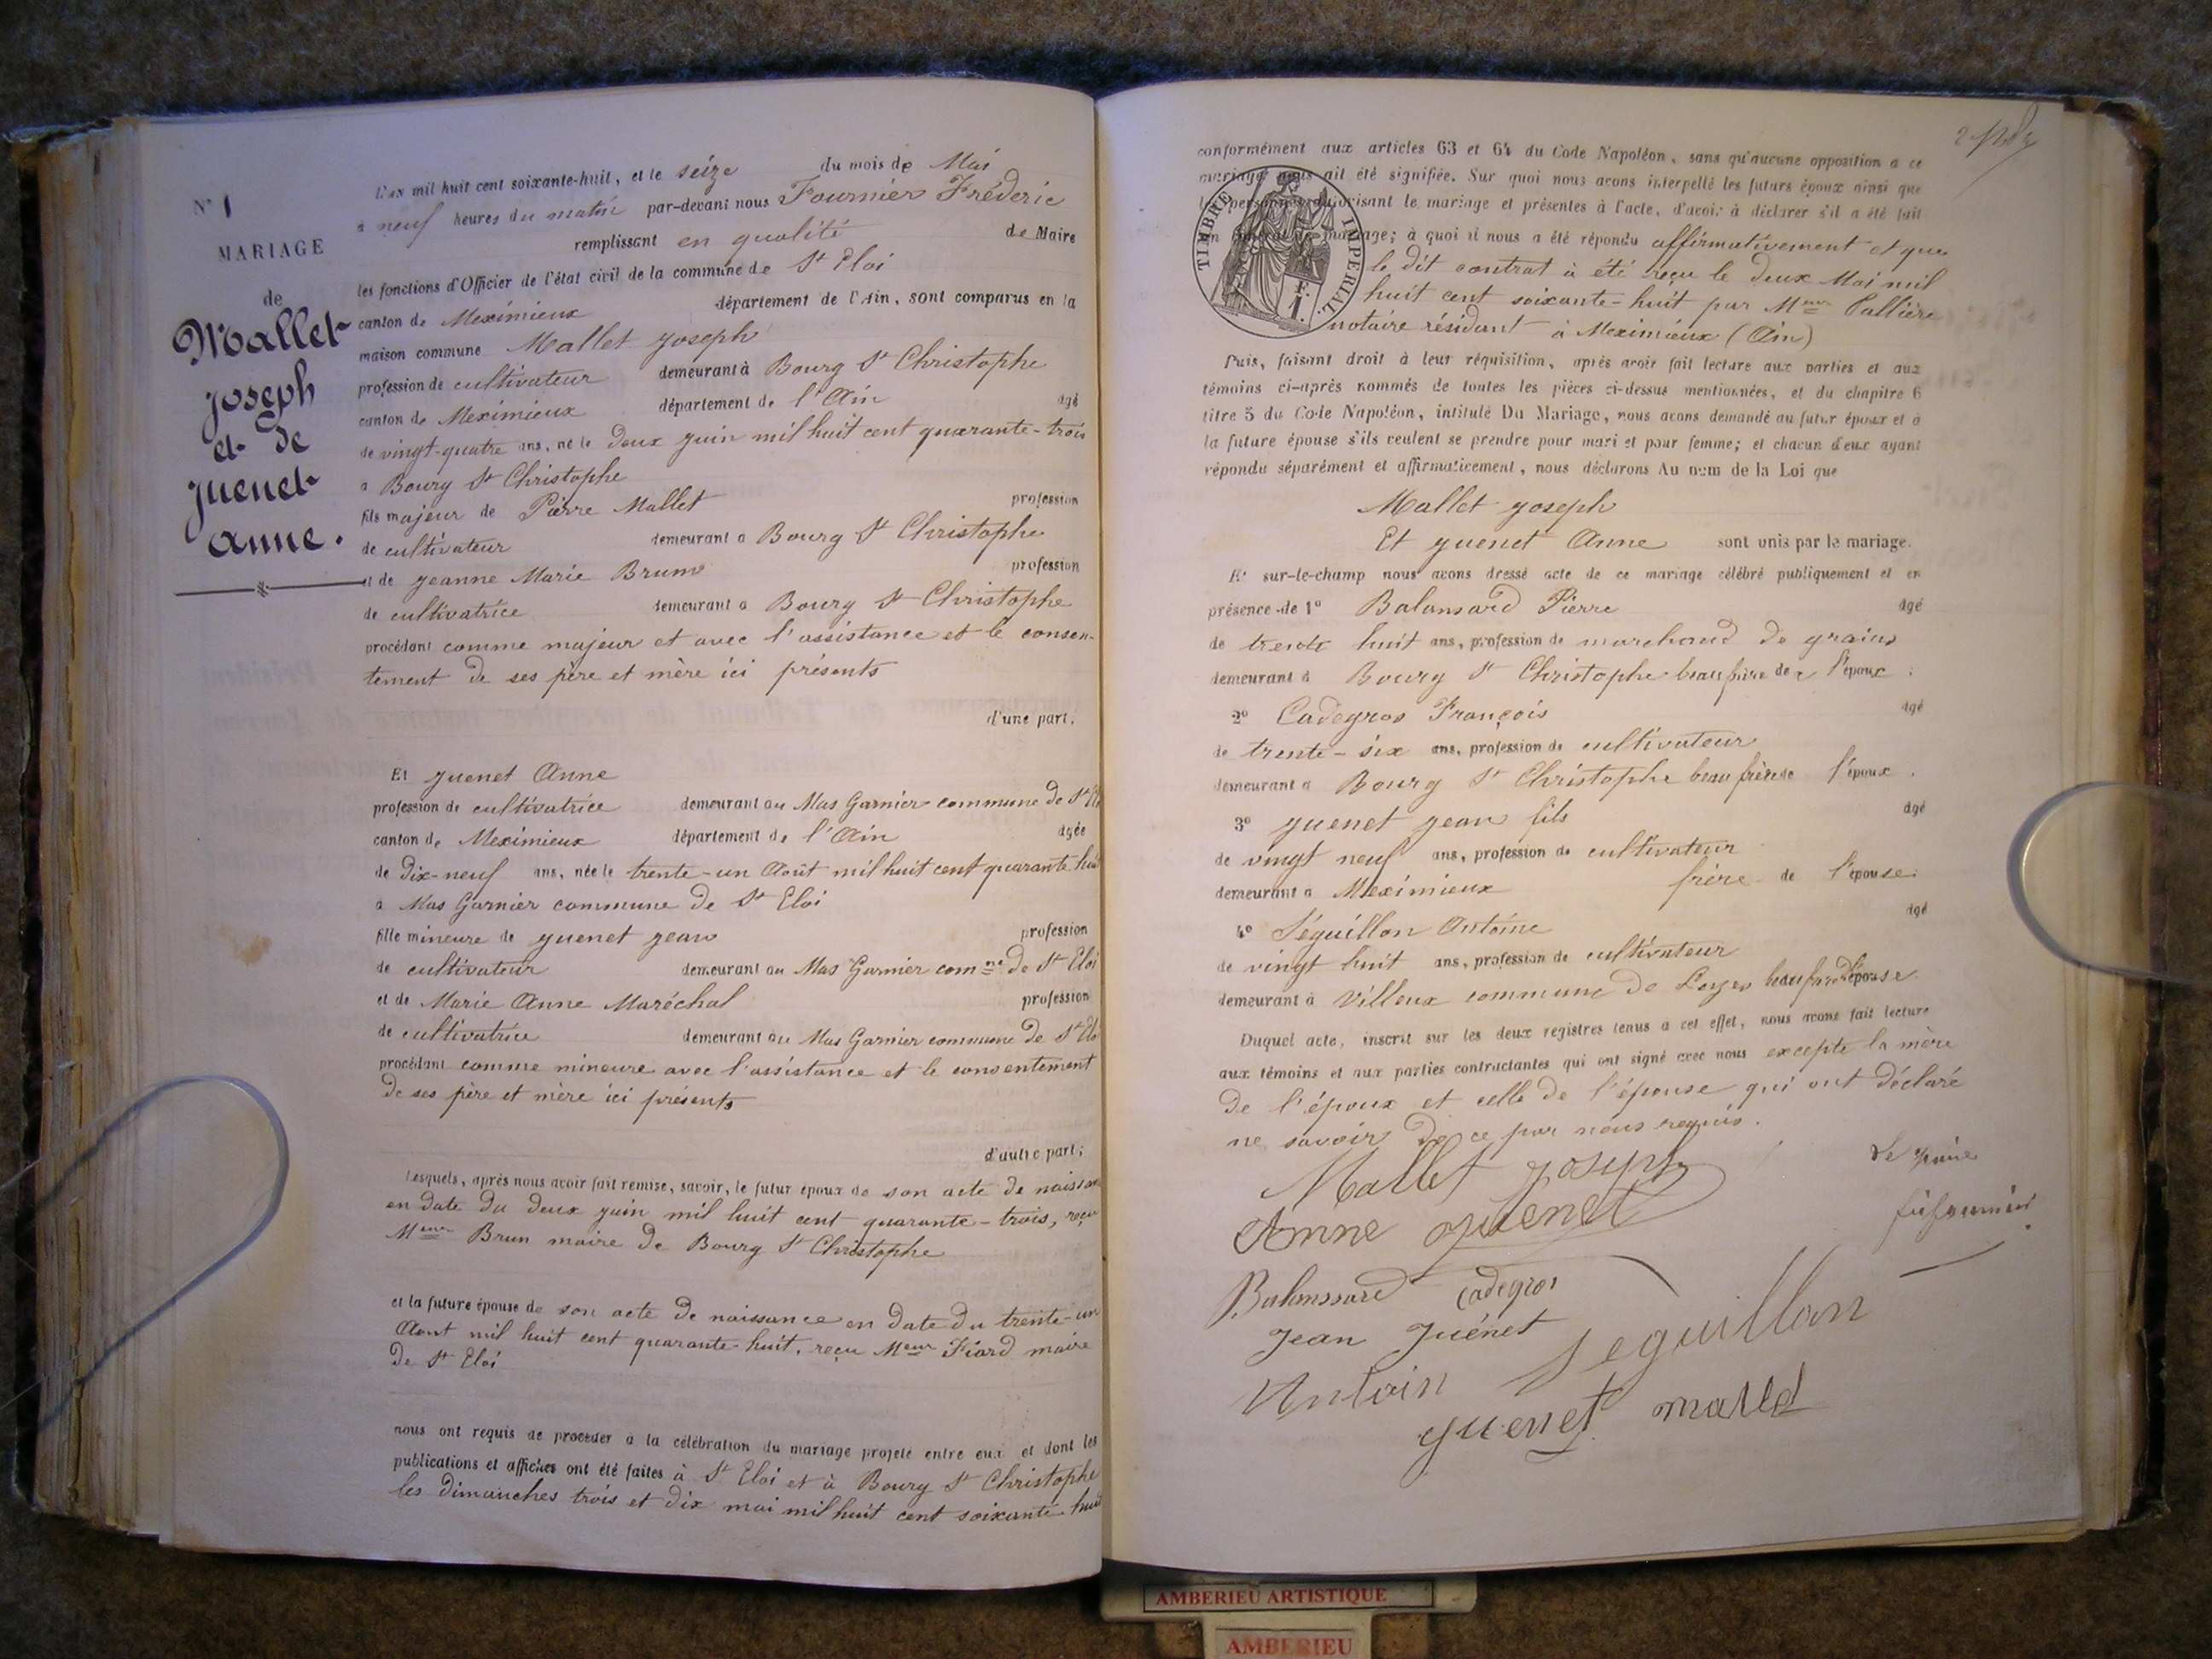 N° 1
MARIAGE
de
Mallet
Joseph
et de
Juenet
Anne.
L'an mil huit cent soixante-huit, et le seize du mois de Mai
à neuf heures du matin par-devant nous Fournier Fréderic
remplissant en qualité de Maire
les fonctions d'Officier de l'état civil de la commune de St Eloi
canton de Meximieux département de l'Ain, sont comparus en la
maison commune Mallet Joseph
profession de cultivateur demeurant à Bourg St Christophe
canton de Meximieux département de l'Ain agé
de vingt-quatre ans, né le deux juin mil huit cent quarante-trois
à Bourg St Christophe
fils majeur de Pierre Mallet profession
de cultivateur demeurant à Bourg St Christophe
et de Jeanne Marie Brun profession
de cultivatrice demeurant à Bourg St Christophe
procédant comme majeur et avec l'assistance et le consen-
tement de ses père et mère ici présents
d'une part.
Et Juenet Anne
profession de cultivatrice demeurant au Mas Garnier commune de St
canton de Meximieux département de l'Ain agée
de Dix-neuf ans, née le trente-un Août mil huit cent quarante
à Mas Garnier commune de St Eloi
fille mineure de Juenet Jean profession
de cultivateur demeurant au Mas Garnier comne de St Eloi
et de Marie Anne Maréchal profession
de cultivatrice demeurant au Mas Garnier commune de St
procédant comme mineure avec l'assistance et le consentement
de ses père et mère ici présents
d'autre part;
Lesquels, après nous avoir fait remise, savoir, le futur époux de son acte de
en date du deux juin mil huit cent quarante-trois, reçu
Meur Brun maire de Bourg St Christophe
et la future épouse de son acte de naissance en date du trente-un
Aout mil huit cent quarante-huit, reçu Meur Fiard maire
de St Eloi
nous ont requis de procéder à la célébration du mariage projeté entre eux et dont les
publications et affiches ont été faites à St Eloi et à Bourg St Christophe
les dimanches trois et dix mai mil huit cent soixante huit
conformément aux articles 63 et 64 du Code Napoléon, sans qu'aucune opposition a ce
mariage nous ait été signifiée. Sur quoi nous avons interpellé les futurs époux ainsi que
les personnes autorisant le mariage et présentes à l'acte, d'avoir à déclarer s'il a été fait
un contrat de mariage; à quoi il nous a été répondu affirmativement et que
le dit contrat à été reçu le deux Mai mil
huit cent soixante-huit par Meur Pallière
notaire résidant à Meximieux (Ain)
TIMBRE IMPERIAL
1 F.
Puis, faisant droit à leur réquisition, après avoir fait lecture aux parties et aux
témoins ci-après nommés de toutes les pièces ci-dessus mentionnées, et du chapitre 6
titre 5 du Code Napoléon, intitulé Du Mariage, nous avons demandé au futur époux et à
la future épouse s'ils veulent se prendre pour mari et pour femme; et chacun d'eux ayant
répondu séparément et affirmativement, nous déclarons Au nom de la Loi que
Mallet Joseph
Et Juenet Anne sont unis par le mariage.
Et sur-le-champ nous avons dressé acte de ce mariage célébré publiquement et en
présence de 1° Balansard Pierre agé
de trente huit ans, profession de marchand de grains
demeurant à Bourg St Christophe beau frère de l'époux.
2° Cadegros François agé
de trente-six ans, profession de cultivateur
demeurant à Bourg St Christophe beau frère de l'époux.
3° Juenet Jean fils agé
de vingt neuf ans, profession de cultivateur
demeurant à Meximieux frère de l'épouse.
4° Séguillon Antoine agé
de vingt huit ans, profession de cultivateur
demeurant à Villeux commune de Loyes beau frère de l'épouse
Duquel acte, inscrit sur les deux registres tenus à cet effet, nous avons fait lecture
aux témoins et aux parties contractantes qui ont signé avec nous excepté la mère
de l'époux et celle de l'épouse qui ont déclaré
ne savoir de ce par nous requis.
Mallet Joseph
Anne Juenet
Le Maire
Balanssard Cadegros
Jean Juénet
Antoin Seguillon
Juenet Mallet
AMBERIEU ARTISTIQUE
AMBERIEU